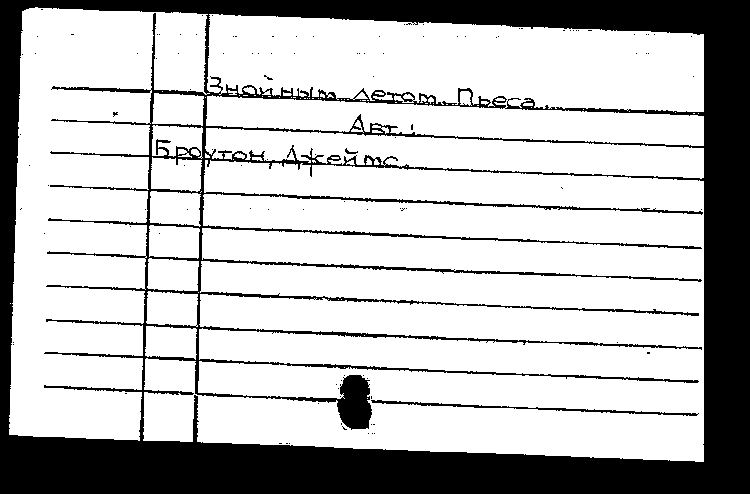 Знойным летом. Пьеса.
Авт.:
Броутон, Джеймс.